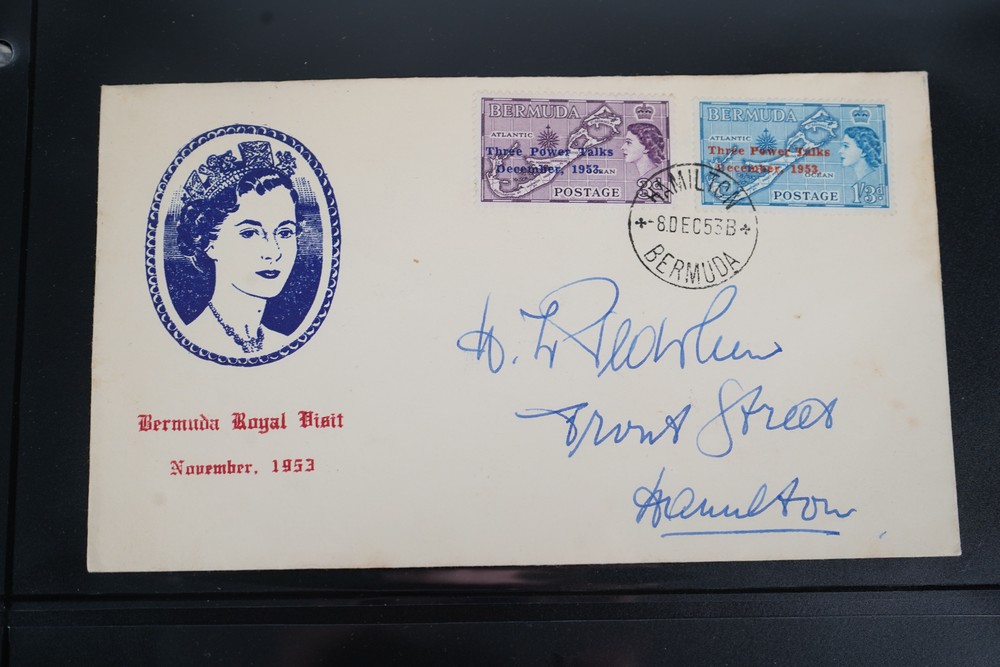 BERMUDA
ATLANTIC
Three Power Talks
December, 1953.
OCEAN
POSTAGE 3d
BERMUDA
ATLANTIC
Three Power Talks
December, 1953.
OCEAN
POSTAGE 1/3d
HAMILTON
-8.DEC53B
BERMUDA
H. L.
Front Street
Hamilton
Bermuda Royal Visit
November, 1953